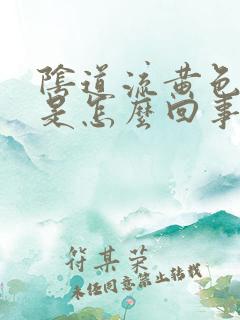 陰道流黄色
是怎麽回事
符某荣
未经同意禁止转载